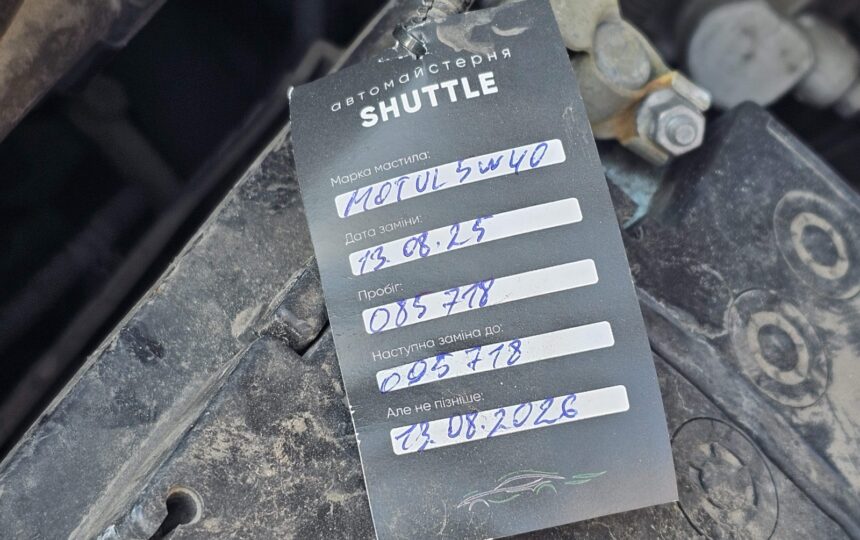 автомайстерня
SHUTTLE
Марка мастила:
MOTUL 5W40
Дата заміни:
13.08.25
Пробіг:
085 718
Наступна заміна до:
095 718
Але не пізніше:
13.08.2026